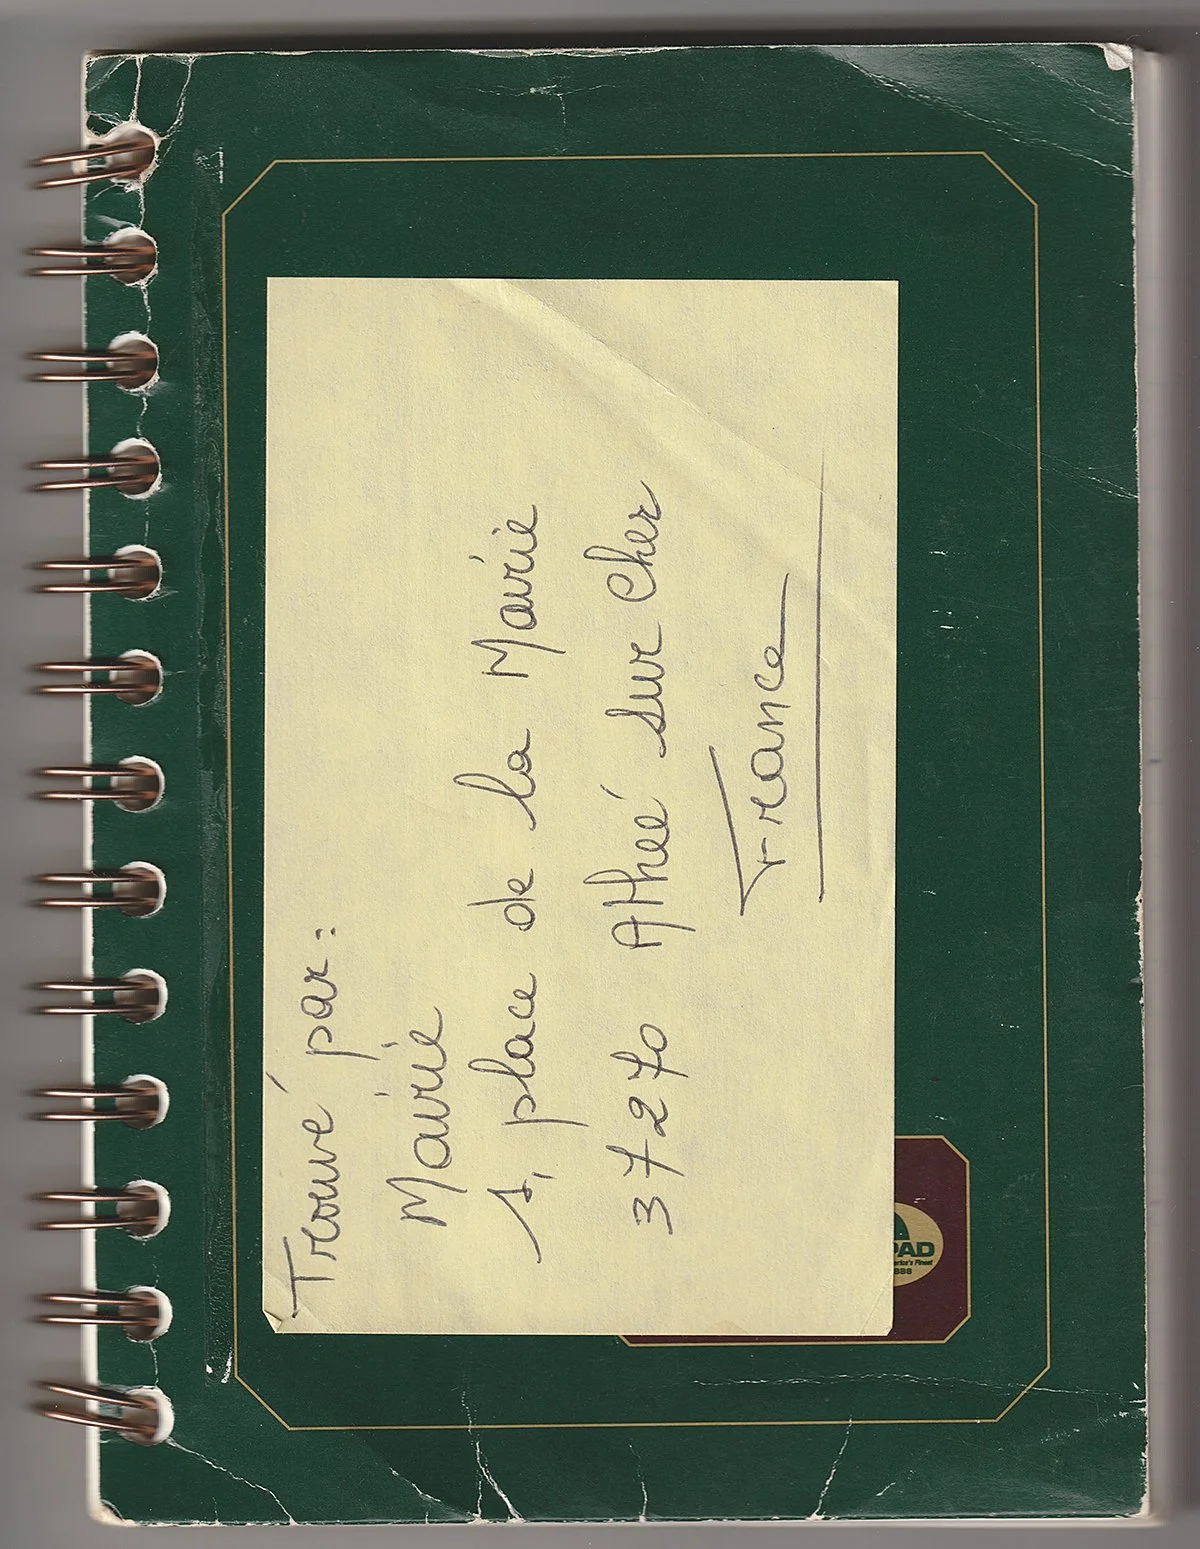 Trouvé par :
Mairie
1, place de la Mairie
37270 Athée sur Cher
France
PAD
888